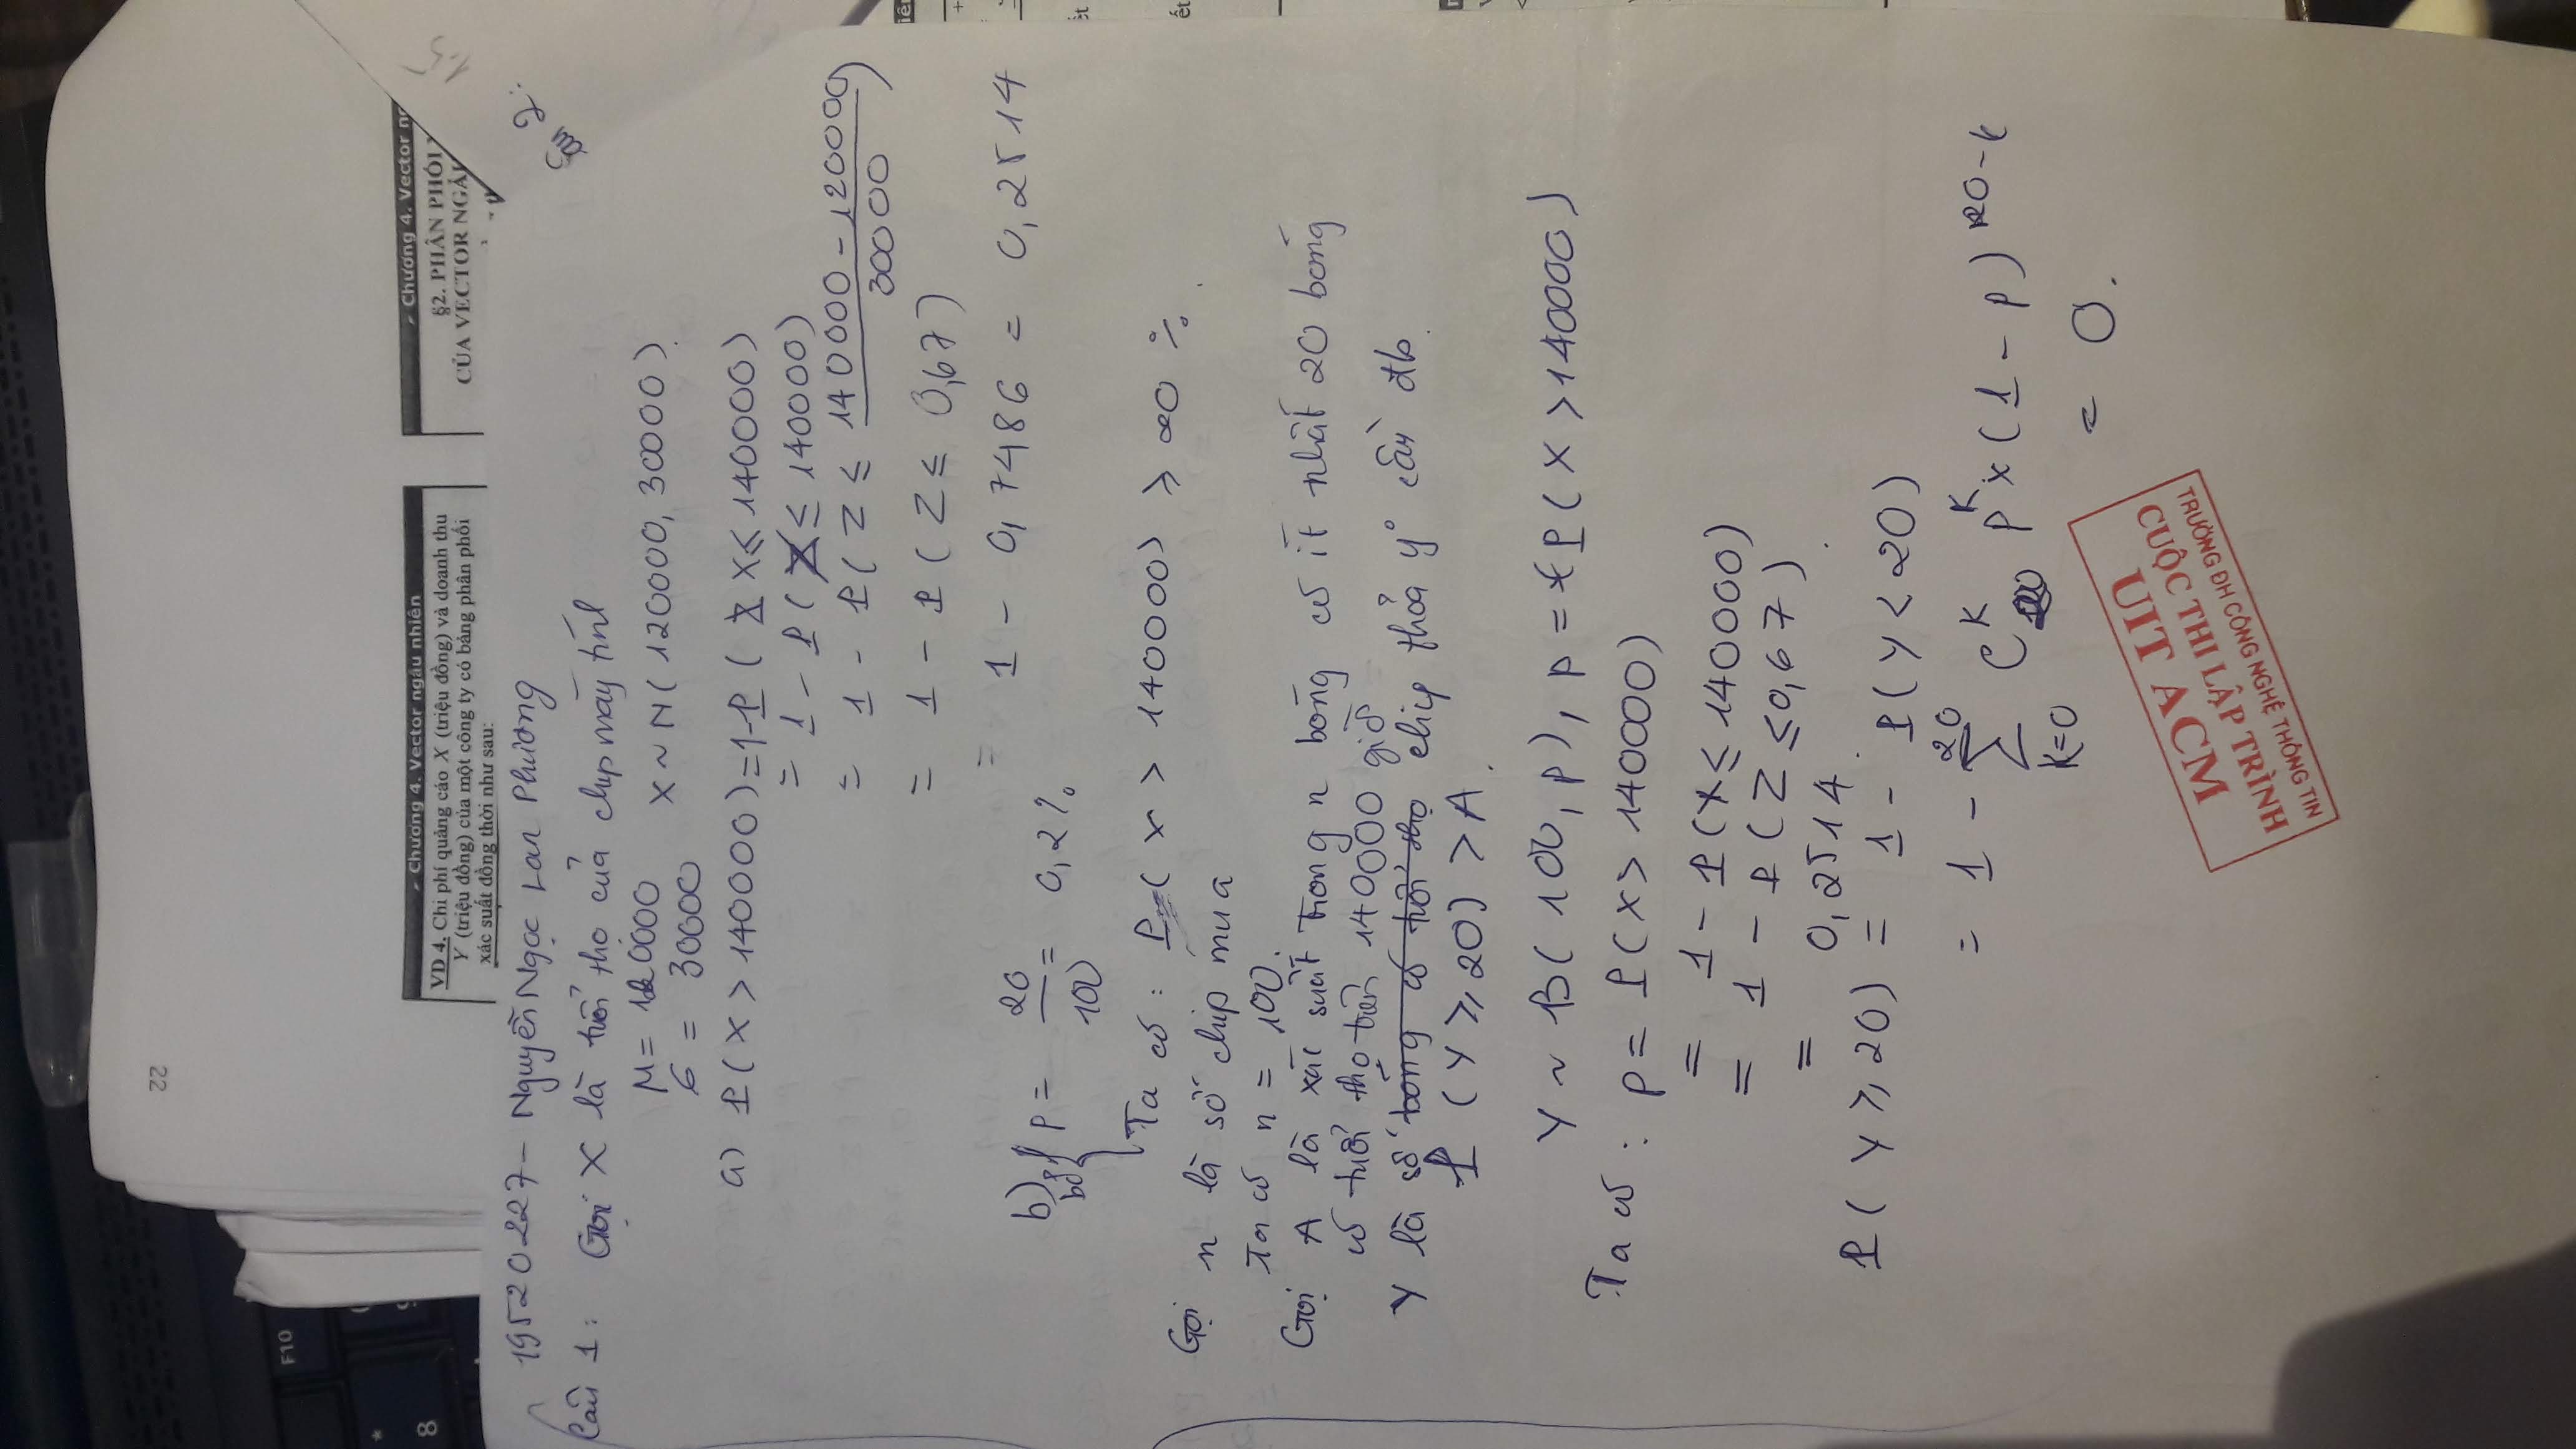 22
F10
*
8
Chương 4. Vector ngẫu nhiên
VD 4. Chi phí quảng cáo X (triệu đồng) và doanh thu
Y (triệu đồng) của một công ty có bảng phân phối
xác suất đồng thời như sau:
Chương 4. Vector
§2. PHÂN PHỐI
CỦA VECTOR
1.5
19520227 - Nguyễn Ngọc Lan Phương
Câu 2:
Câu 1: Gọi X là tuổi thọ của chip máy tính
μ = 120000
σ = 30000
X ~ N(120000, 30000)
a) P(X > 140000) = 1 - P(X ≤ 140000)
= 1 - P( ≤ 140000)
= 1 - P(Z ≤ (140000 - 120000)/30000)
= 1 - P(Z ≤ 0,67)
= 1 - 0,7486 = 0,2514
b) p = 20/100 = 0,2%
bỏ
Ta có: P(X > 140000) ≥ 20%
Gọi n là số chip mua
Ta có n = 100.
Gọi A là xác suất trong n bóng có ít nhất 20 bóng
có tuổi thọ trên 140000 giờ
Y là số bóng có tuổi thọ chip thỏa y° cầu đb
P(Y ≥ 20) > A.
Y ~ B(100, p), p = P(X > 140000)
Ta có: p = P(X > 140000)
= 1 - P(X ≤ 140000)
= 1 - P(Z ≤ 0,67)
= 0,2514
P(Y ≥ 20) = 1 - P(Y < 20)
20
= 1 - Σ C^K p^K × (1 - p)
K=0
= 0.
TRƯỜNG ĐH CÔNG NGHỆ THÔNG TIN
CUỘC THI LẬP TRÌNH
UIT ACM